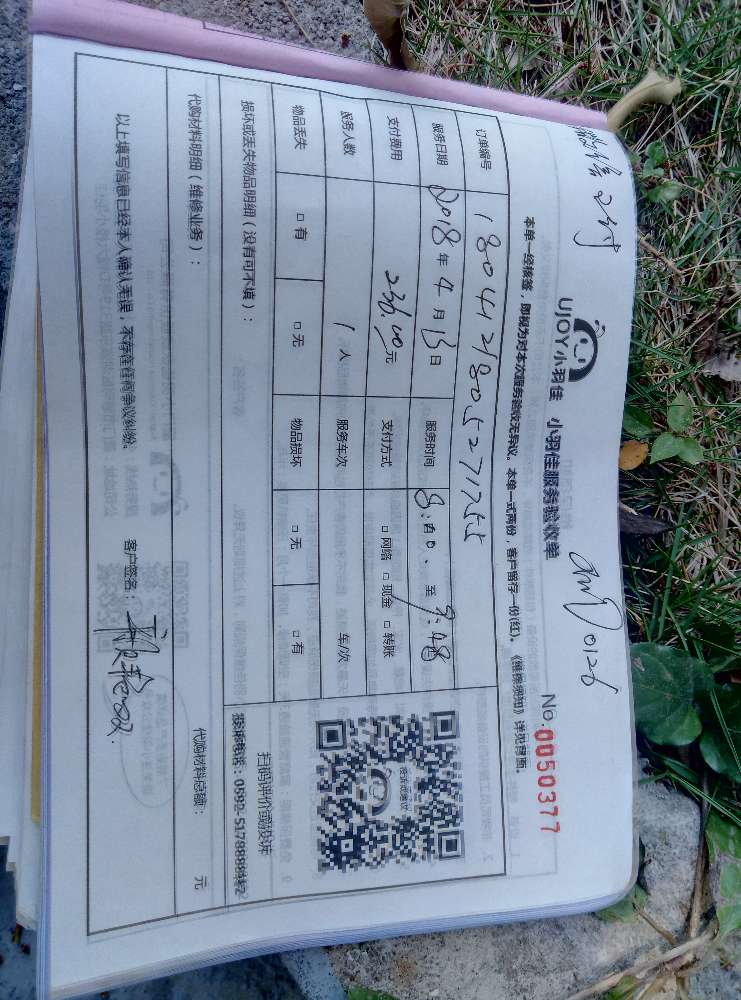 微信 2付
0126
UJOY小羽佳 小羽佳服务验收单
No.0050377
本单一经核签，即视为对本次服务验收无异议。本单一式两份，客户留存一份(红)，《维修须知》详见背面。
订单编号 180412180527175५
服务日期 2018年4月13日 服务时间 8:00、至9:48
支付费用 元 支付方式 □网络 □现金 □转账
服务人数 1人 服务车次 车/次
物品丢失 □有 □无 物品损坏 □无 □有
损坏或丢失物品明细（没有可不填）：
扫码评价或投诉
投诉电话：0592-5178888转2
代购材料明细（维修业务）： 代购材料总额： 元
以上填写信息已经本人确认无误，不存在任何争议纠纷。 客户签名：